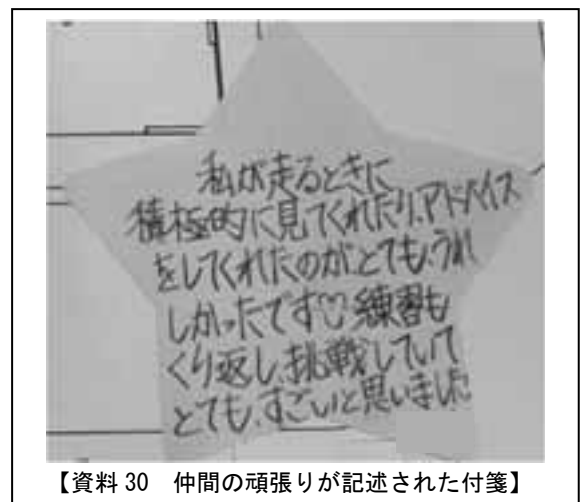 私が走るときに
積極的に見てくれたり、アドバイス
をしてくれたのがとても、うれ
しかったです♡練習も
くり返し、挑戦していて
とても、すごいと思いました
【資料30 仲間の頑張りが記述された付箋】